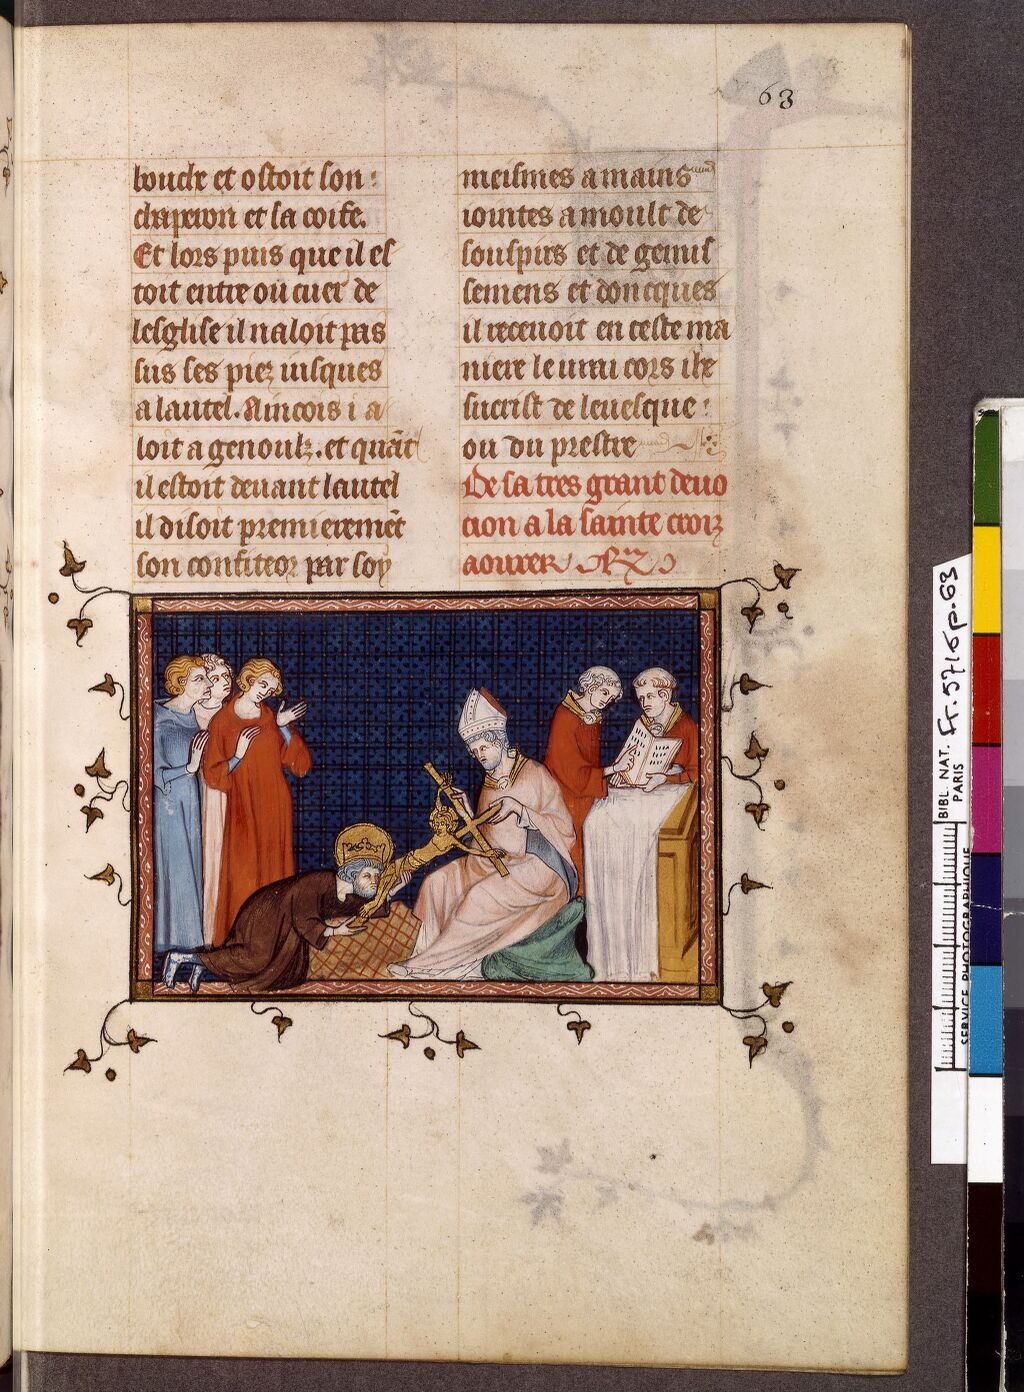 63
bouche et ostoit son
chaperon et sa coife.
Et lors puis que il es
toit entre ou cuer de
lesglise il naloit pas
sus ses piez iusques
a lautel. Aincois i a
loit a genoulz. et quāt
il estoit deuant lautel
il disoit premieremēt
son confiteor par soy
meismes a mains
iointes a moult de
souspirs et de gemis
semens et doncques
il receuoit en ceste ma
niere le urai cors ihe
sucrist de leuesque
ou du prestre
De sa tres grant deuo
cion a la sainte croiz
aourer
BIBL. NAT. Fr. 5716 p. 63
PARIS
SERVICE PHOTOGRAPHIQUE